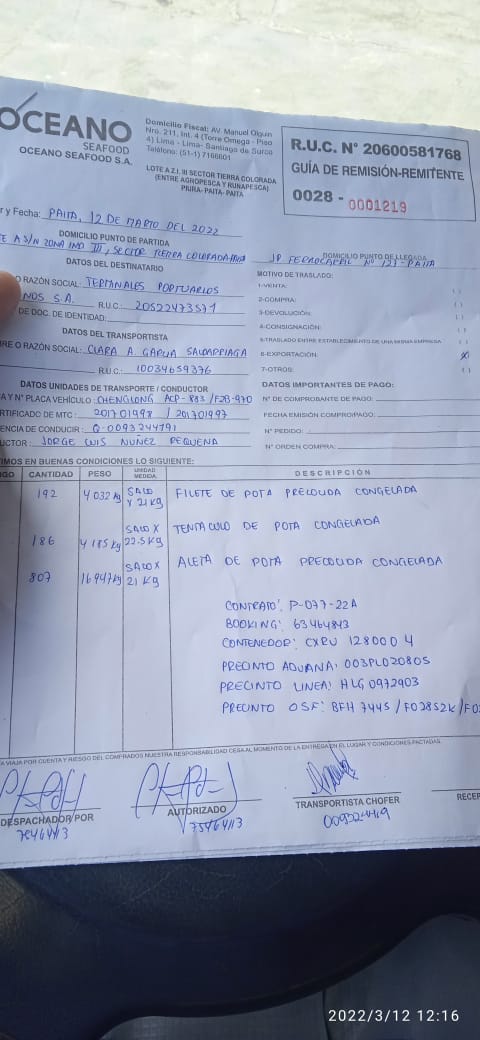 OCEANO
SEAFOOD
OCEANO SEAFOOD S.A.
Domicilio Fiscal: AV. Manuel Olguin
Nro. 211, Int. 4 (Torre Omega - Piso
4) Lima - Lima- Santiago de Surco
Teléfono: (51-1) 7166601
LOTE A Z.I. III SECTOR TIERRA COLORADA
(ENTRE AGROPESCA Y RUÑAPESCA)
PIURA- PAITA- PAITA
R.U.C. N° 20600581768
GUÍA DE REMISIÓN-REMITENTE
0028 - 0001219
r y Fecha: PAITA, 12 DE MARZO DEL 2022
DOMICILIO PUNTO DE PARTIDA
TE A S/N ZONA IND III, SECTOR TIERRA COLORADA-PAITA
DOMICILIO PUNTO DE LLEGADA
JR FERROCARRIL N° 127-PAITA
DATOS DEL DESTINATARIO
O RAZÓN SOCIAL: TERMINALES PORTUARIOS
NOS S.A. R.U.C: 20522473571
DE DOC. DE IDENTIDAD:
MOTIVO DE TRASLADO:
1-VENTA: ( )
2-COMPRA: ( )
3-DEVOLUCIÓN: ( )
4-CONSIGNACIÓN: ( )
5-TRASLADO ENTRE ESTABLECIMIENTO DE UNA MISMA EMPRESA ( )
6-EXPORTACIÓN: (X)
7-OTROS: ( )
DATOS DEL TRANSPORTISTA
BRE O RAZÓN SOCIAL: CLARA A. GARCIA SALDARRIAGA
R.U.C: 10034659376
DATOS UNIDADES DE TRANSPORTE / CONDUCTOR
A Y N° PLACA VEHÍCULO: CHENGLONG ACP-883 /F2B-970
ERTIFICADO DE MTC: 201701998 / 201701997
ENCIA DE CONDUCIR: Q-0093244791
DUCTOR: JORGE LUIS NUÑEZ PEQUEÑA
DATOS IMPORTANTES DE PAGO:
N° DE COMPROBANTE DE PAGO:
FECHA EMISIÓN COMP/PAGO:
N° PEDIDO:
N° ORDEN COMPRA:
TIMOS EN BUENAS CONDICIONES LO SIGUIENTE:
IGO CANTIDAD PESO UNIDAD MEDIDA DESCRIPCIÓN
192 4032 kg SACO X 21 KG FILETE DE POTA PRECOCIDA CONGELADA
186 4185 kg SACO X 22.5 KG TENTACULO DE POTA CONGELADA
807 16947 kg SACO X 21 KG ALETA DE POTA PRECOCIDA CONGELADA
CONTRATO: P-077-22A
BOOKING: 63464843
CONTENEDOR: CXRU 128000 4
PRECINTO ADUANA: 003PL020805
PRECINTO LINEA: HLG 0972903
PRECINTO OSF: BFH 7445 / F02852K / F0
A VIAJA POR CUENTA Y RIESGO DEL COMPRADOS NUESTRA RESPONSABILIDAD CESA AL MOMENTO DE LA ENTREGA EN EL LUGAR Y CONDICIONES PACTADAS.
DESPACHADOR POR
75464113
AUTORIZADO
75464113
TRANSPORTISTA CHOFER
RECEP
2022/3/12 12:16